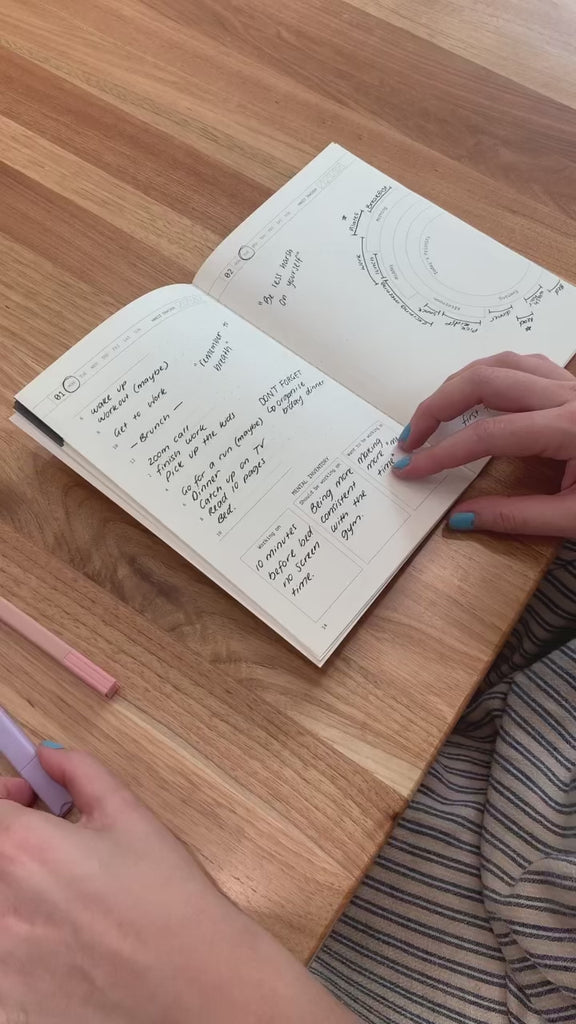 01 MON TUE WED THU FRI SAT SUN
wake up
workout (maybe)
Get to work
— Brunch —
zoom call
finish work
pick up the kids
Go for a run (maybe)
Dinner
Catch up on TV
Read 10 pages
Bed.
"remember to
breath"
DON'T FORGET
organise
b'day dinner
MENTAL INVENTORY
Working on
10 minutes
before bed
no screen
time.
Should be working on
Being more
consistent
with the
gym.
Want to be working on
making
more "m
time
02
"Be less harsh
on yourself"
Pilates
Breakfast
work
Lunch
Dinner
Bed
first